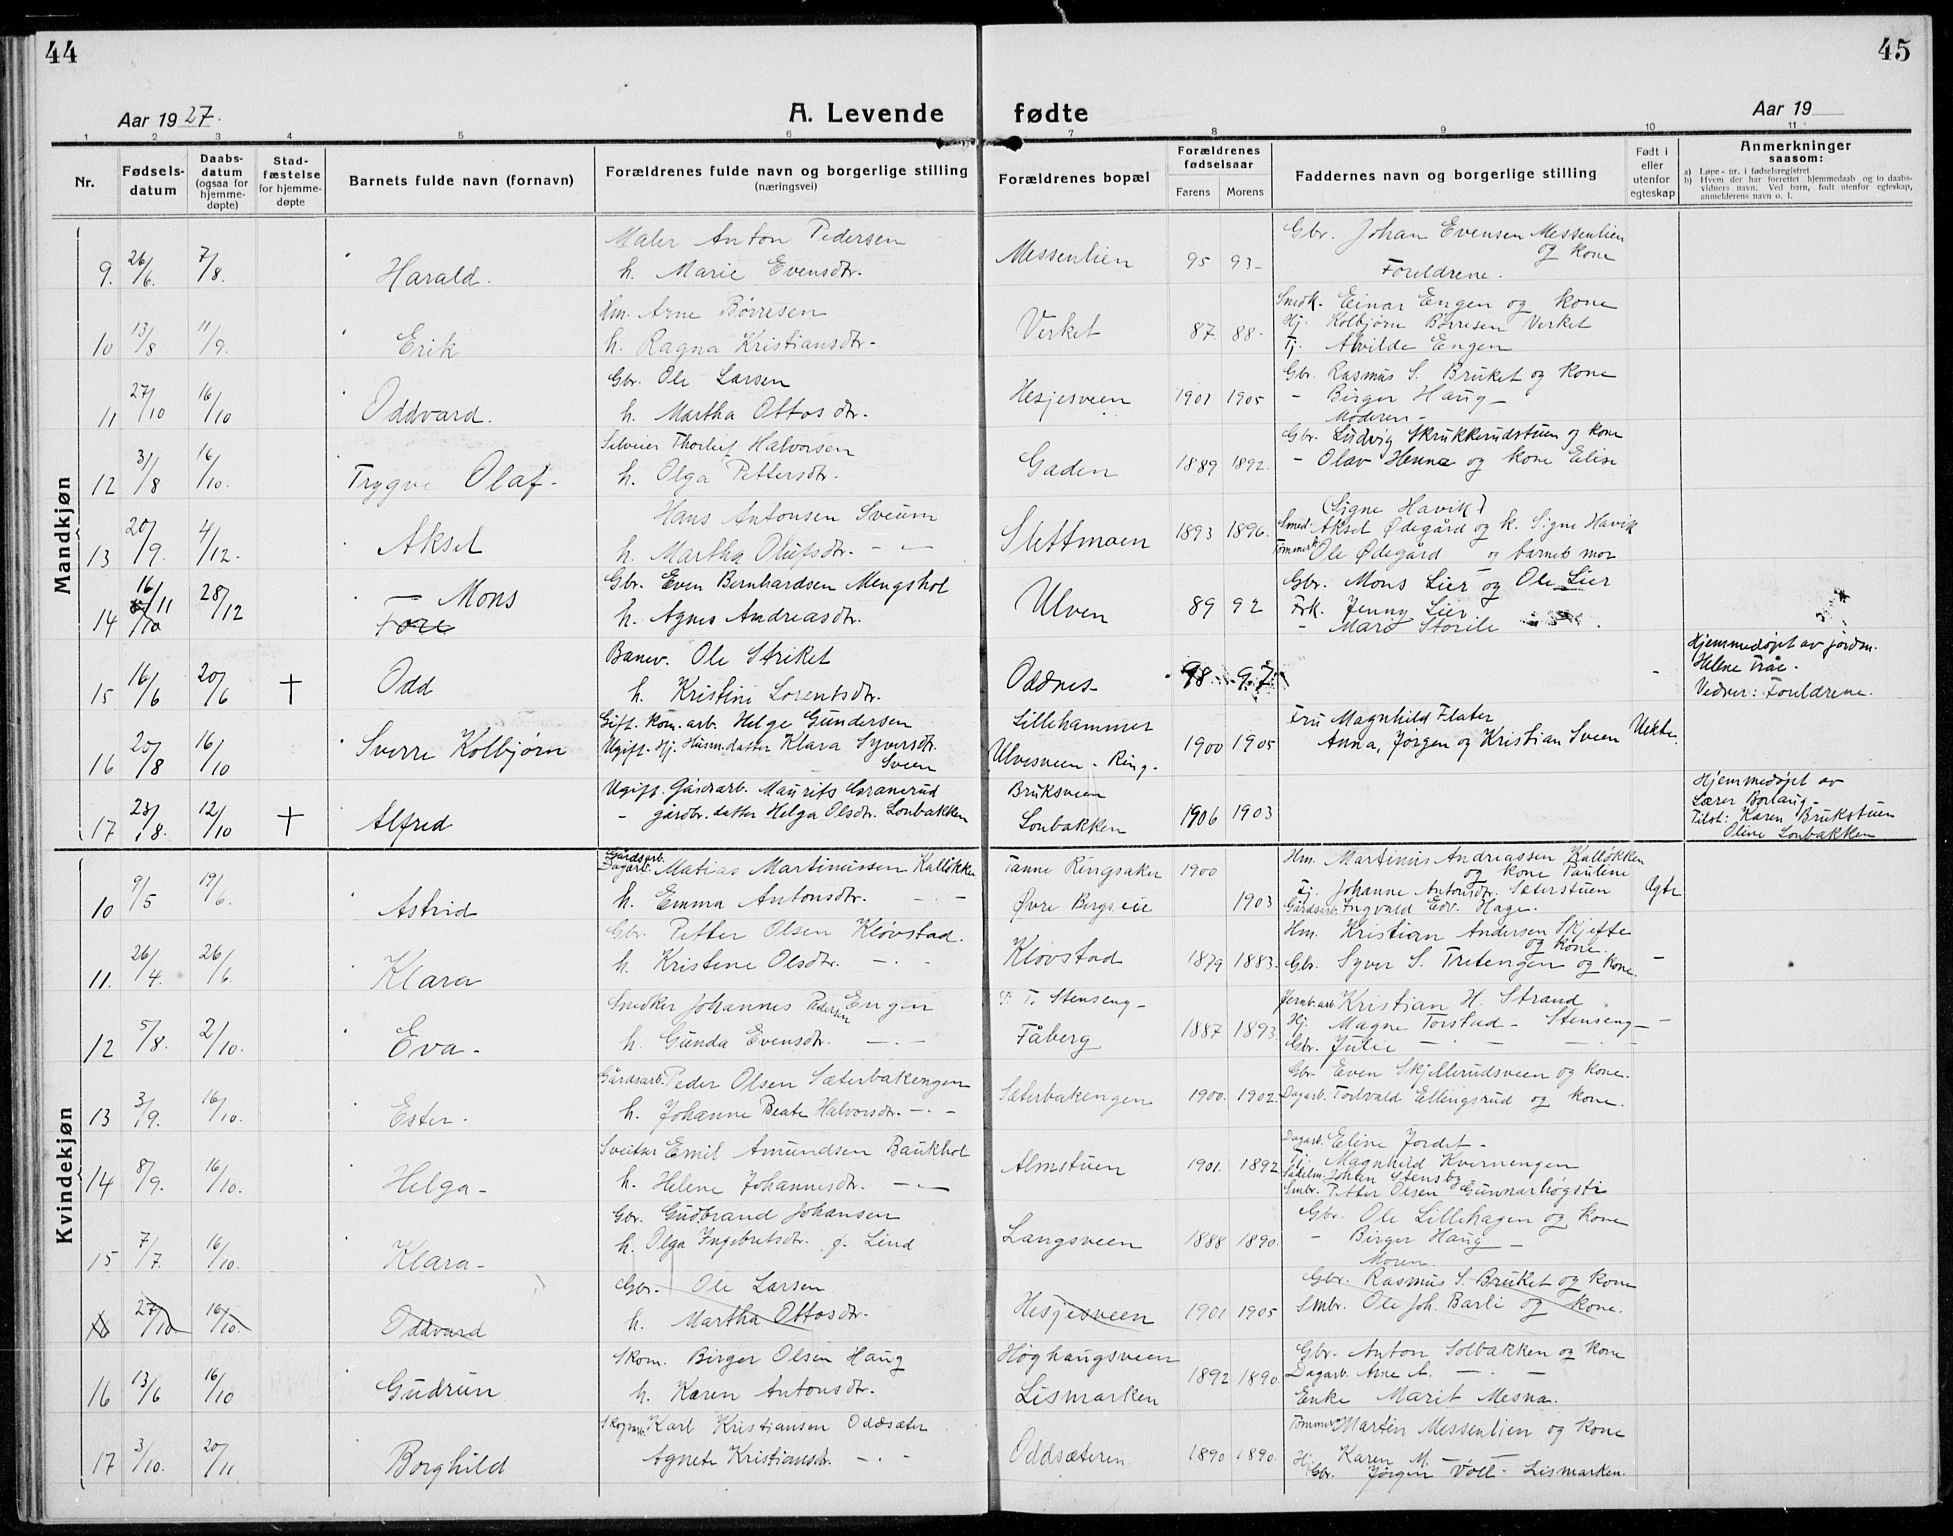 44
45
Aar 1927.
A. Levende fødte
Aar 19
1 2 3 4 5 6 7 8 9 10 11
Nr.
Fødsels-
datum
Daabs-
datum
(ogsaa for
hjemme-
døpte)
Stad-
fæstelse
for hjemme-
døpte
Barnets fulde navn (fornavn)
Forældrenes fulde navn og borgerlige stilling
(næringsvei)
Forældrenes bopæl
Forældrenes
fødselsaar
Farens Morens
Faddernes navn og borgerlige stilling
Født i
eller
utenfor
egteskap
Anmerkninger
saasom:
a) Løpe-nr. i fødselsregistret
b) Hvem der har forrettet hjemmedaab og to daabs-
vidners navn. Ved barn, født utenfor egteskap,
anmelderens navn o. l.
Mandkjøn
9. 26/6. 7/8. Harald.
Maler Anton Pedersen
h. Marie Evensdtr.
Messenlien 95 93-
Gbr. Johan Evensen Messenlien
og kone
Foreldrene.
10 13/8 11/9. Erik
Hm. Arne Børresen
h. Ragna Kristiansdtr-
Verket 87. 88-
Snedk. Einar Engen og kone
Hj. Kolbjørn Børresen Verket
Tj. Alvilde Engen
11 27/10 16/10 Oddvard.
Gbr. Ole Larsen
h. Martha Ottosdtr.
Hesjesveen 1901 1905
Gbr. Rasmus S. Bruket og kone
- Birger Haug -
Moderen-
12 31/8 16/10. Trygve Olaf-
Thorleif Halvorsen
h. Olga Pettersdtr.
Gaden 1889 1892.
Gbr. Ludvig Skrukkerudstuen og kone
- Olav Henne og kone Elise
13 20/9. 4/12. Aksel
Hans Antonsen Sveum
h. Martha Olufsdtr. - -
Slettmoen 1893 1896.
(Signe Havik)
Smed. Aksel Ødegård og k. Signe Havik
Tømmerh. Ole Ødegård og barnets mor
14 16/11 28/12 - Mons
Tore
Gbr. Even Bernhardsen Mengshol
h. Agnes Andreasdtr.
Ulven 89 92
Gbr. Mons Lier og Ole Lier
Frk. Jenny Lier
- Mari Storile
15 16/6 20/6 † Odd
Banev. Ole Striket
h. Kristine Lorentsdtr.
Oddnes 98 97
Hjemmedøpt av jordm.
Helene Tråe.
Vedner: Foreldrene.
16 20/8 16/10 Sverre Kolbjørn
Gift. kom. arb. Helge Gundersen
Ugift. Hj. Husm.datter Klara Syversdtr.
Sveen
Lillehammer
Ulvesveen - Ring. 1900 1905
Fru Magnhild Flater
Anna, Jørgen og Kristian Sveen Uekte.
17 23/8. 12/10 † Alfred
Ugift. Gårdarb. Maurits Granerud
- gårdbr. datter Helga Olsdtr. Lonbakken
Bruksveen
Lonbakken 1906 1903
Hjemmedøpt av
Lærer Borlaug-
Tilst: Karen Brukstuen
Oline Lonbakken
Kvindekjøn
10 9/5 19/6. Astrid
Gårdsarb.
Dagarb. Matias Martinussen Kalløkken
h. Emma Antonsdtr. - -
Tanne Ringsaker 1900
Øvre Bergseie 1903
Hm. Martinus Andreassen Kalløkken
og kone Pauline
Tj. Johanne Antonsdtr. Sæterstuen
Gårdsarb. Ingvald Edv. Hage. Egte
11. 26/4. 26/6 Klara
Gbr. Petter Olsen Kløvstad.
h. Kristene Olsdtr. - . -
Kløvstad 1879 1883.
Hm. Kristian Andersen Skjefte
og kone.
Gbr. Syver S. Tretengen og kone. -
12 5/8. 2/10. Eva-
Snedker Johannes Pedersen Engen
h. Gunda Evensdtr. - . -
P. T. Stenseng-
Fåberg 1887 1893
Jernb.arb. Kristian H. Strand
Hj. Magne Torstad - Stenseng - -
Gbr. Julie - . - - . -
13 3/9. 16/10. Ester.
Gårdsarb. Peder Olsen Sæterbakengen
h. Johanne Beate Halvorsdtr. - . -
Sæterbakengen 1900. 1902.
Gbr. Even Skjellerudsveen og kone.
Dagarb. Torvald Ellingsrud og kone.
14 8/9. 16/10. Helga-
Sveitser Emil Amundsen Baukhol
h. Helene Johannesdtr. - -
Almstuen 1901. 1892
Dagarb. Eline Jordet-
Tj. Magnhild Kvernengen
Sadelm. Johan Stensby
Smbr. Petter Olsen Gunnarhøgsti
15 7/7. 16/10. Klara-
Gbr. Gudbrand Johansen
h. Olga Ingebretsdtr. f. Lind
Langsveen 1888 1890.
Gbr. Ole Lillehagen og kone
- Birger Haug -
Moren.
27/10 16/10. Oddvard
Gbr. Ole Larsen
h. Martha Ottosdtr.
Hesjesveen 1901 1905
Gbr. Rasmus S. Bruket og kone
Smbr. Ole Joh. Barli og kone.
16 13/6 16/10 Gudrun
Skom. Birger Olsen Haug
h. Karen Antonsdtr.
Høghaugsveen
Lismarken 1892 1890
Gbr. Anton Solbakken og kone
Dagarb. Arne A. - . -
Enke Marit Mesna.
17 3/10. 20/11 Borghild
Skogarb. Karl Kristiansen Oddsæter
Agnete Kristiansdtr. - . -
Oddsæteren. 1890 1890.
Tømmerm Martin Messenlien og kone
Hj. Karen M. - -
Gbr. Jørgen Voll- Lismarken.